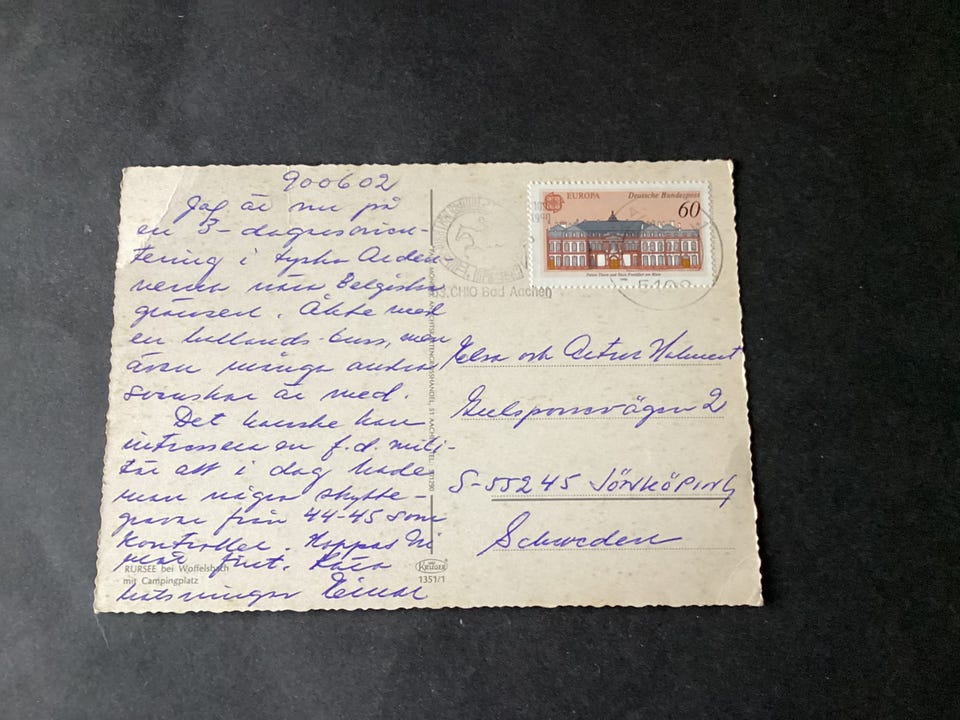 900602
Jag är nu på
en 3-dagarsorien-
tering i tyska Arden-
nerna nära Belgiska
gränsen. Åkte med
en hollands-buss, men
även många andra
svenskar är med.
Det kanske kan
intressera en f.d. mili-
tär att i dag hade
man några skytte-
gravar från 44-45 som
kontroller. Hoppas Ni
mår fint.
hälsningar Einar
RURSEE bei Woffelsbach
mit Campingplatz
KRÜGER
1351/1
EUROPA
Deutsche Bundespost
60
Palais Thurn und Taxis Frankfurt am Main
1990
CHIO Bad Aachen
5100
Elsa och Artur
Gullspångsvägen 2
S-55245 JÖNKÖPING
Schweden